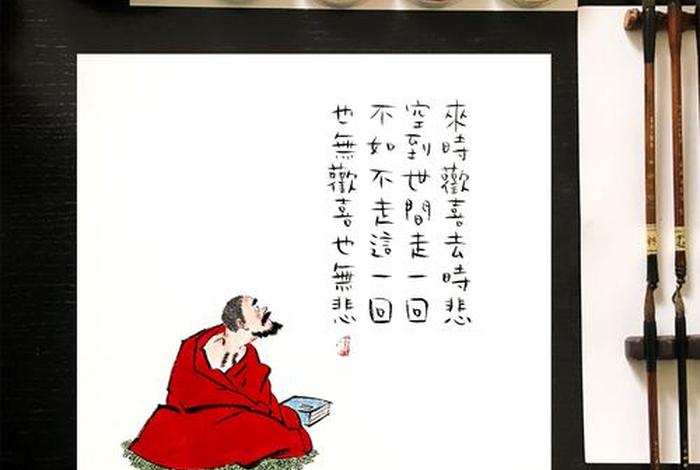 來時歡喜去時悲
空到世間走一回
不如不走這一回
也無歡喜也無悲